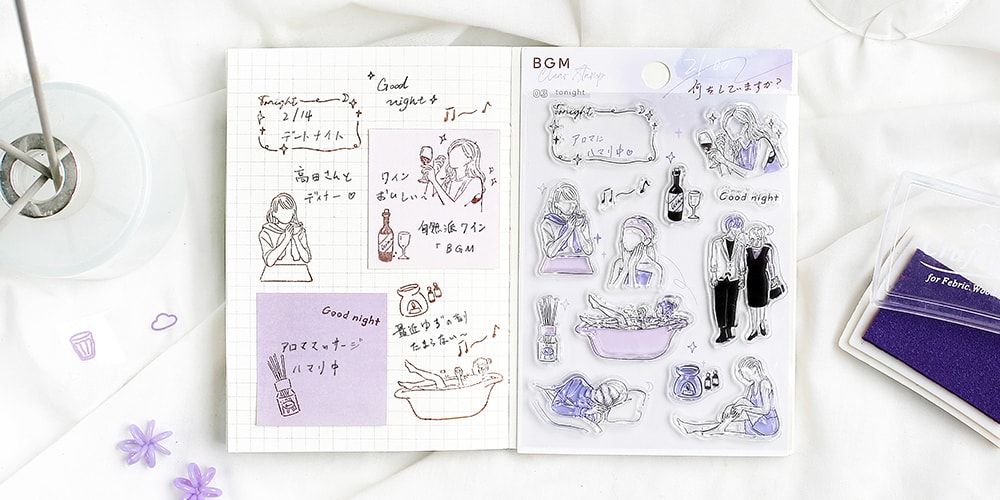 Good
night
Tonight
2/14
デートナイト
高田さんと
ディナー♡
ワイン
おいしい〜
自然派ワイン
「BGM
Good night
アロママッサージ
ハマり中
最近ゆずの香り
たまらない〜
BGM
Clear Stamp
03 tonight
何をしていますか?
Tonight
アロマに
ハマり中♡
Good night
for Febric. Woo